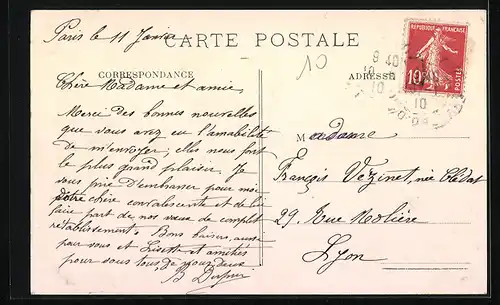 Paris le 11 Janvier
CARTE POSTALE
CORRESPONDANCE
ADRESSE
10
REPUBLIQUE FRANÇAISE
10
POSTES
9 40
10
10
Chère Madame et amie
Merci des bonnes nouvelles
que vous avez eu l'amabilité
de m'envoyer; elles nous font
le plus grand plaisir. Je
vous prie d'embrasser pour moi
votre chère convalescente et de lui
faire part de nos vœux de complet
rétablissement. Bons baisers, aussi
pour vous et Lisette et amitiés
pour vous tous, de nous deux
B.
Madame
François Vezinet, née
29. Rue Molière
Lyon